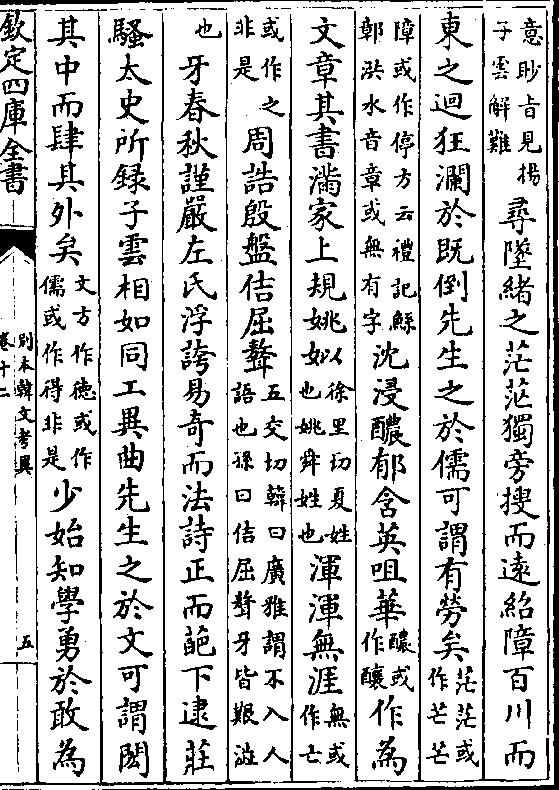 意眇㫖見揚子雲解難尋墜緒之茫茫獨旁搜而逺紹障百川而
東之迴狂瀾於既倒先生之於儒可謂有勞矣茫茫或作芒芒
障或作停方云禮記鯀鄣洪水音章或無有字沈浸醲郁含英咀華醲或作釀作為
文章其書滿家上規姚姒徐里切夏姓也姚舜姓也渾渾無涯無或作亡
或作之非是周誥殷盤佶屈聱五交切韓曰廣雅謂不入人語也孫曰佶屈聱牙皆艱澁
也牙春秋謹嚴左氏浮誇易奇而法詩正而葩下逮莊
騷太史所録子雲相如同工異曲先生之於文可謂閎
其中而肆其外矣文方作徳或作儒或作得非是少始知學勇於敢為
欽定四庫全書
別本韓文考異
卷十二
五